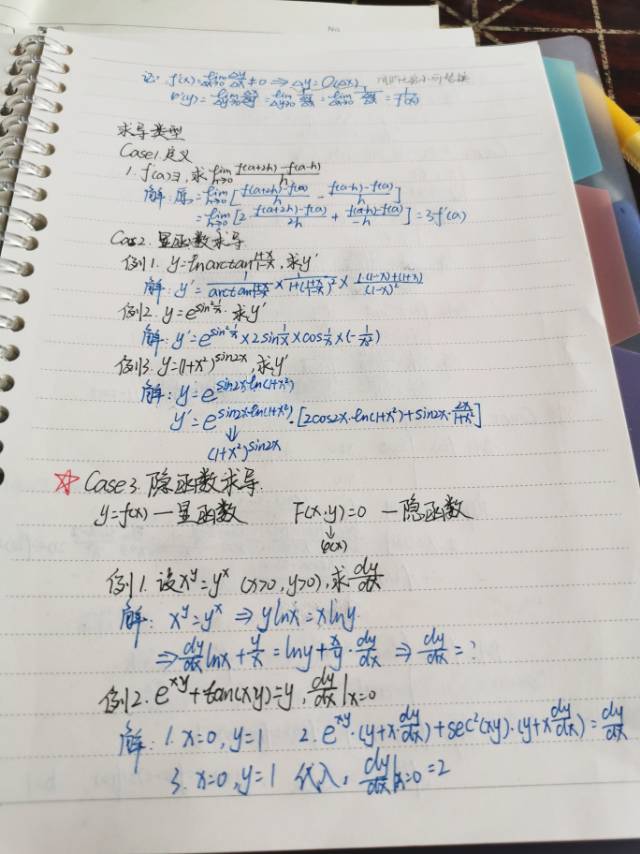 No
记: f'(x)=lim Δx→0 Δy/Δx ≠0 ⇒ Δy=O(Δx)
φ'(y)=lim Δy→0 Δx/Δy = lim Δy→0 1/(Δy/Δx) = lim Δx→0 1/(Δy/Δx) = 1/f'(x)
求导类型
Case1.定义
1. f'(a)∃, 求 lim h→0 (f(a+2h)-f(a-h))/h
解: 原=lim h→0 [(f(a+2h)-f(a))/h - (f(a-h)-f(a))/h]
=lim h→0 [2·(f(a+2h)-f(a))/2h + (f(a-h)-f(a))/-h] = 3f'(a)
Case2.显函数求导
例1. y=ln arctan (1+x)/(1-x), 求y'
解: y'= 1/(arctan (1+x)/(1-x)) × 1/(1+((1+x)/(1-x))²) × (1·(1-x)+(1+x))/(1-x)²
例2. y=e^(sin² 1/x). 求y'
解: y'=e^(sin² 1/x) × 2sin 1/x × cos 1/x × (-1/x²)
例3. y=(1+x²)^(sin2x), 求y'
解: y=e^(sin2x·ln(1+x²))
y'=e^(sin2x·ln(1+x²))·[2cos2x·ln(1+x²)+sin2x·2x/(1+x²)]
⇓
(1+x²)^(sin2x)
☆ Case3.隐函数求导.
y=f(x) — 显函数 F(x,y)=0 — 隐函数
↓
φ(x)
例1. 设x^y=y^x (x>0, y>0), 求 dy/dx
解: x^y=y^x ⇒ ylnx=xlny
⇒ dy/dx lnx + y/x = lny + x/y · dy/dx ⇒ dy/dx = ?
例2. e^(xy)+tan(xy)=y, dy/dx|x=0
解: 1. x=0, y=1 2. e^(xy)·(y+x·dy/dx)+sec²(xy)·(y+x dy/dx)=dy/dx
3. x=0, y=1 代入, dy/dx|x=0 =2